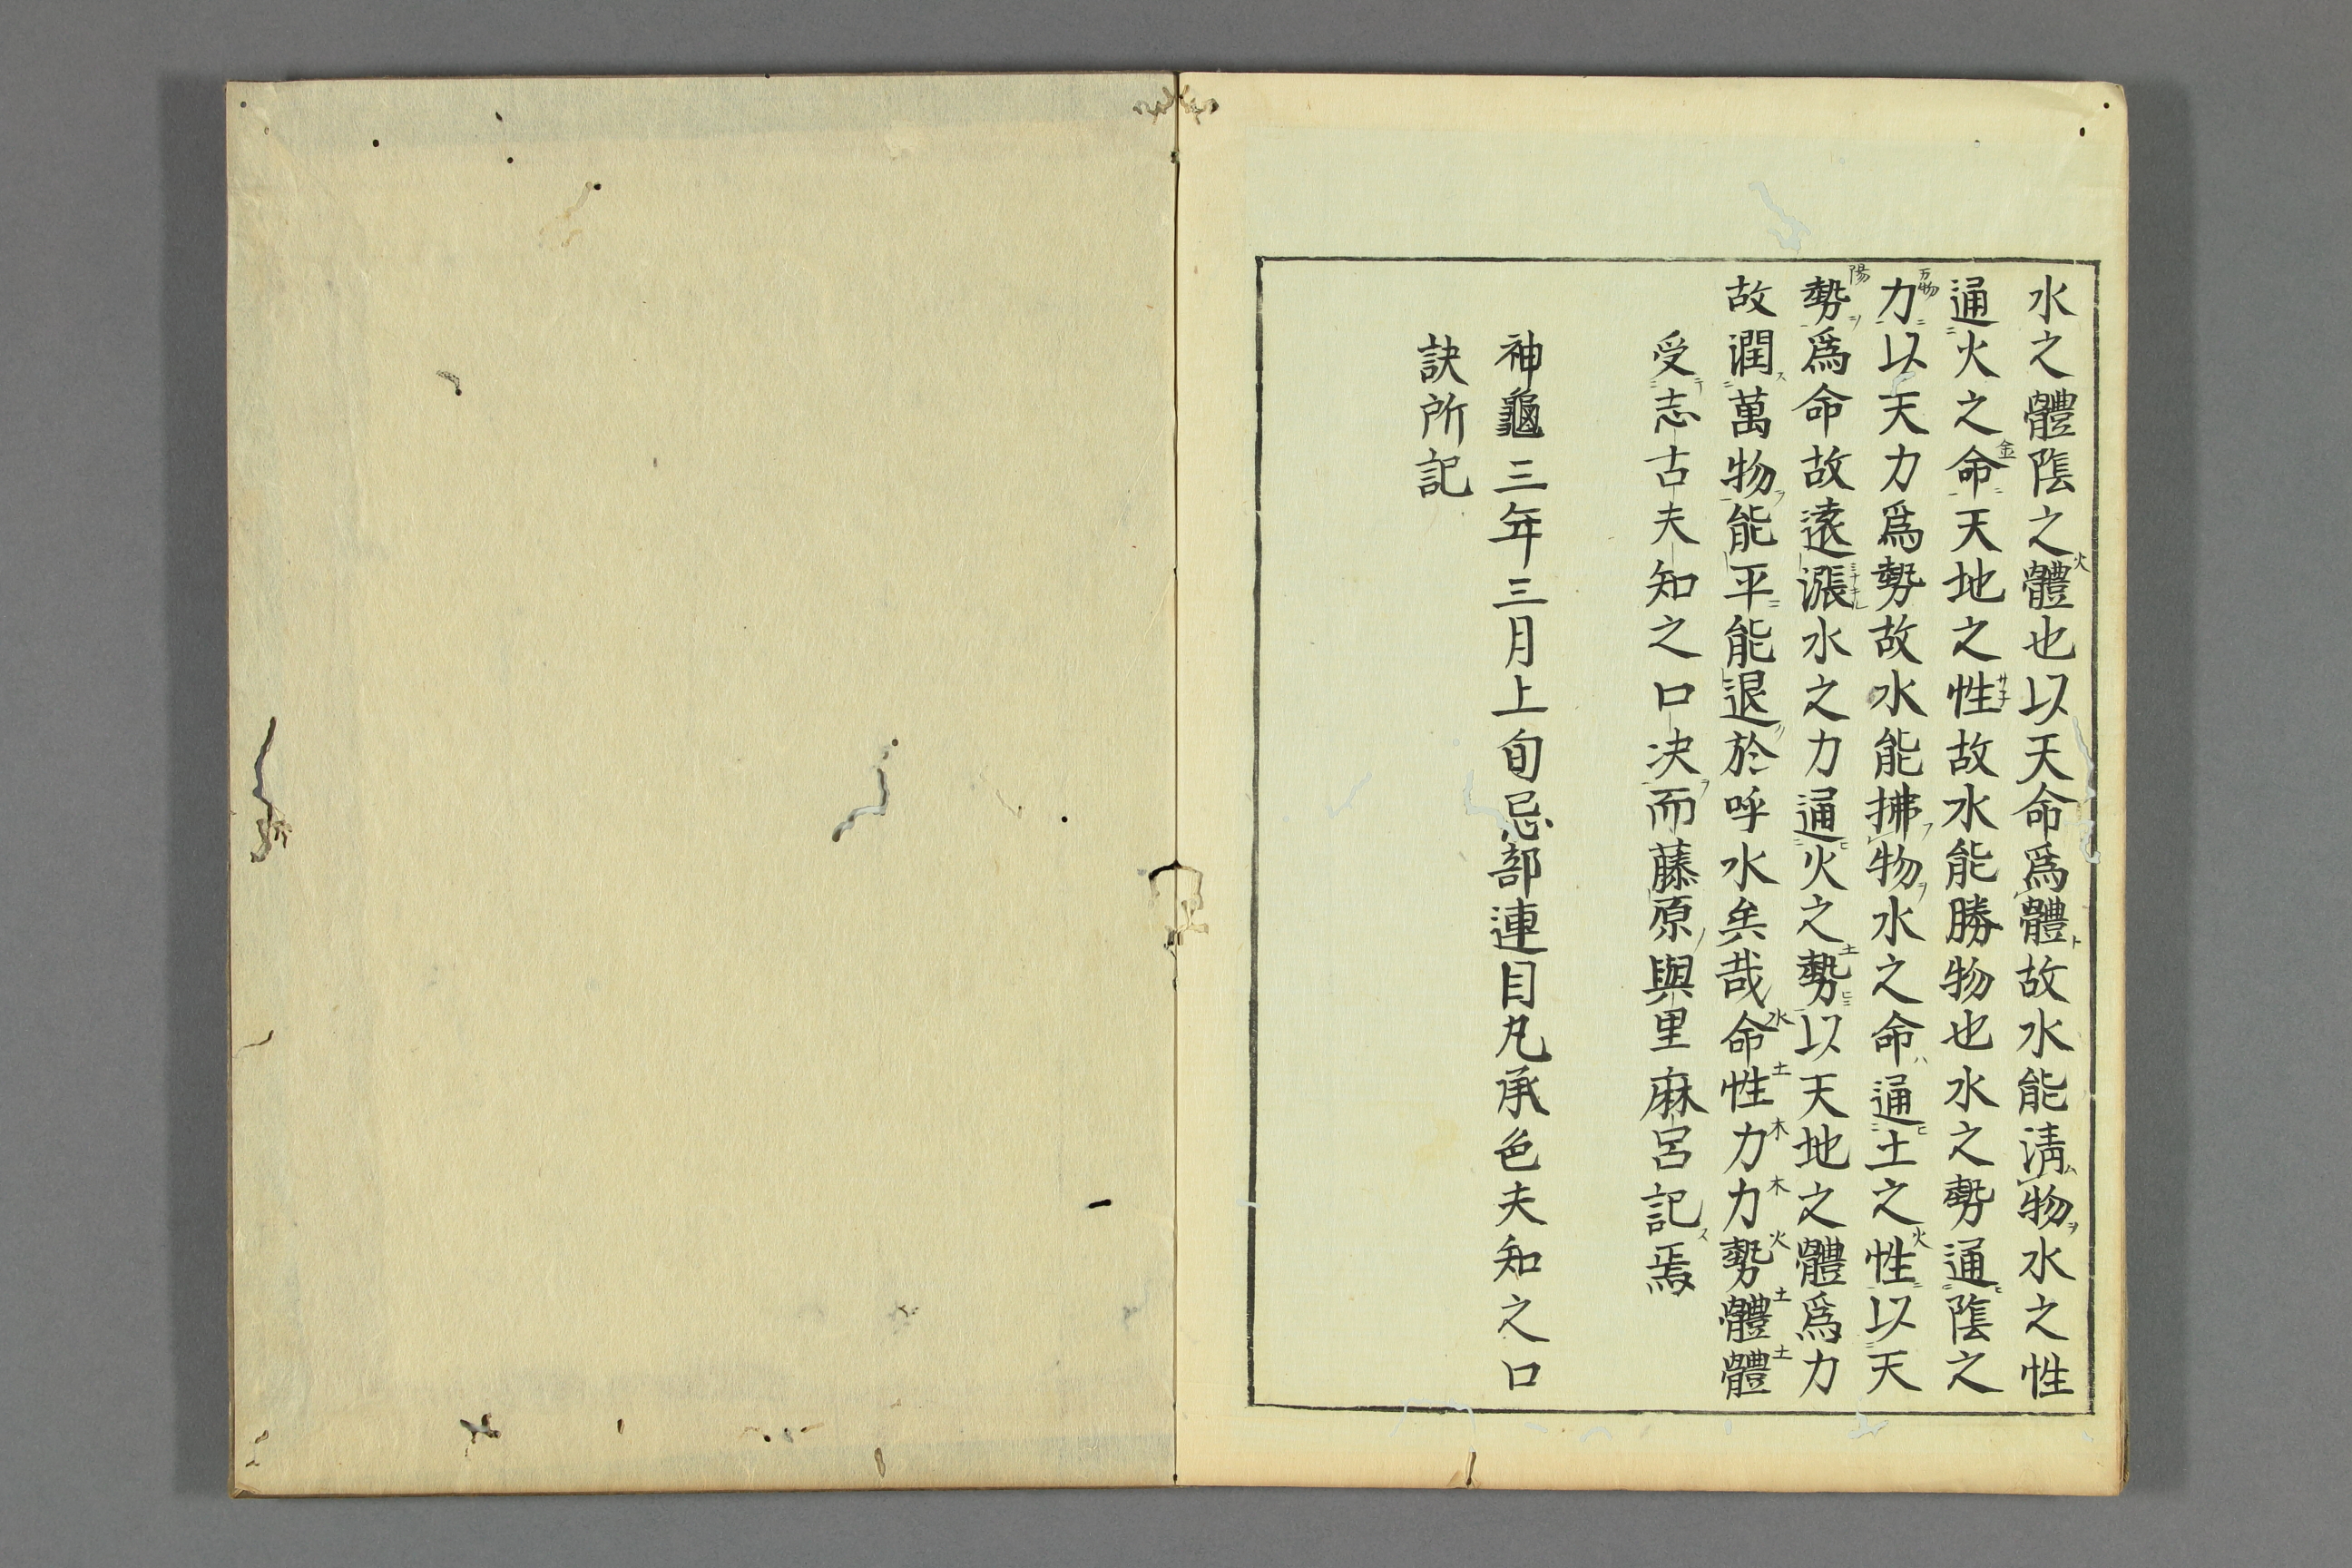 水之體隂之體也以天命爲體故水能淸物水之性
通火之命天地之性故水能勝物也水之勢通隂之
力以天力爲勢故水能拂物水之命通土之性以天
勢爲命故遠漲水之力通火之勢以天地之體爲力
故潤萬物能平能退於呼水矣哉命性力力勢體體
受志古夫知之口决而藤原與里麻呂記焉
神龜三年三月上旬忌部連目凡承色夫知之口
訣所記